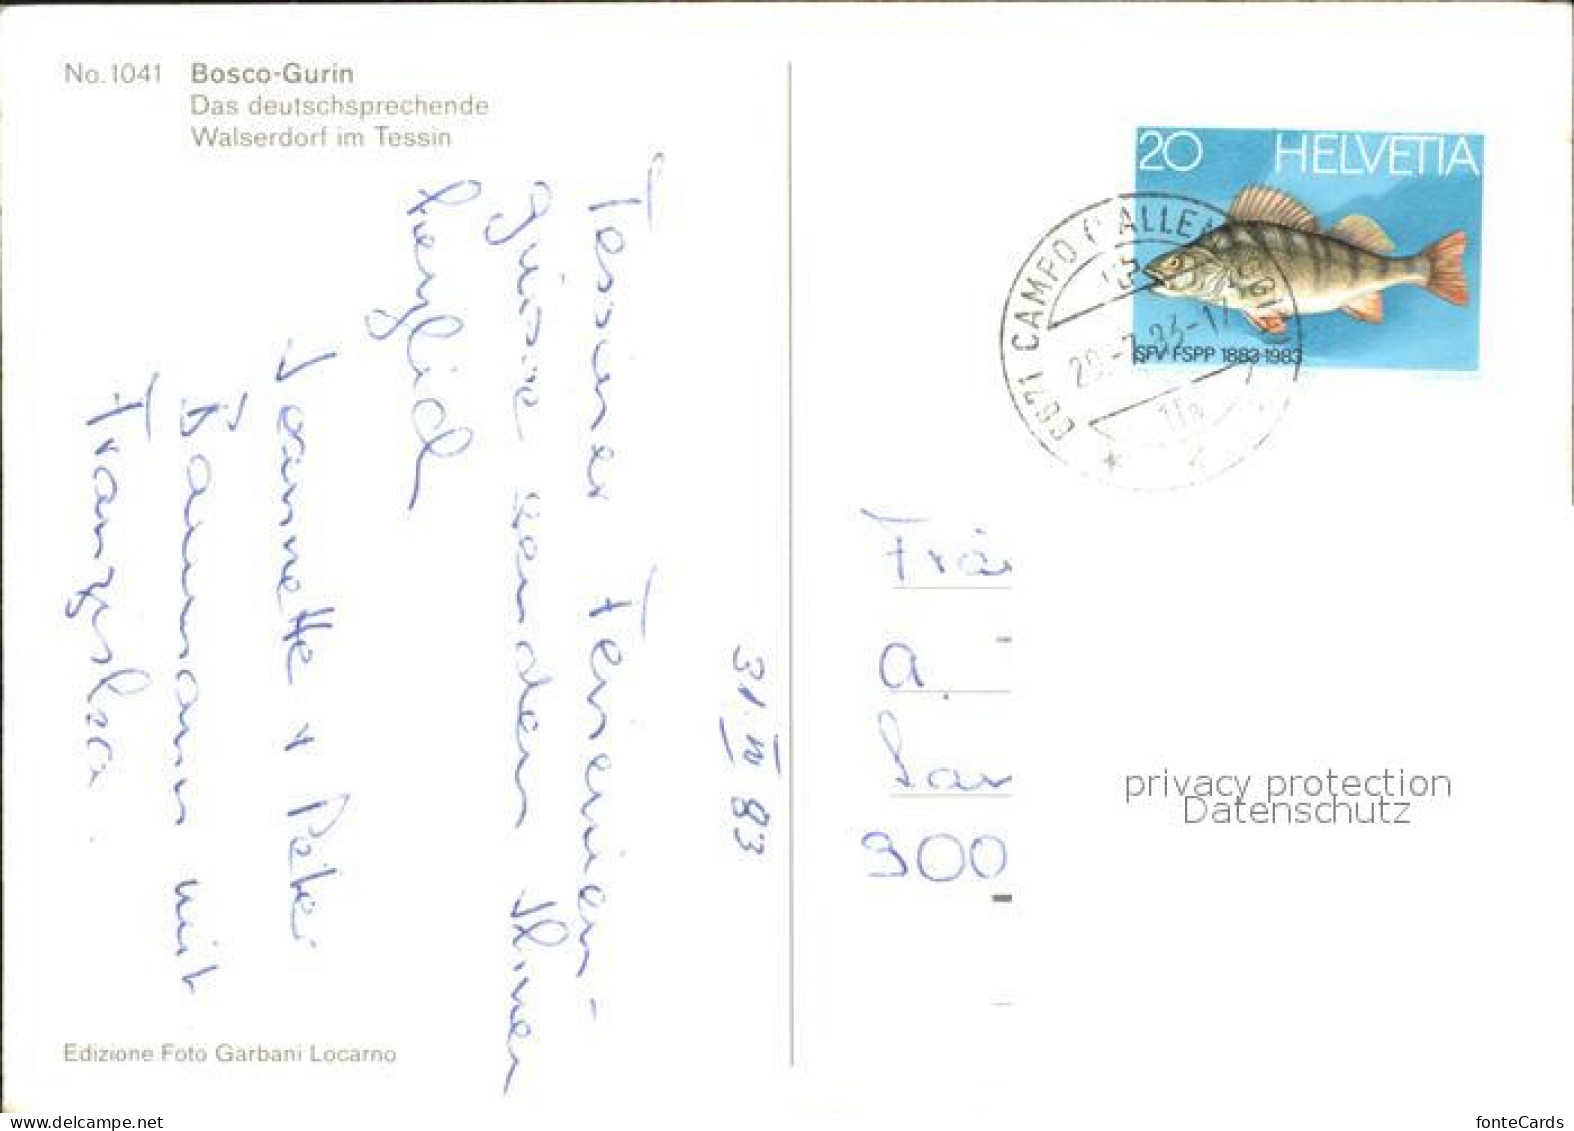 No. 1041 Bosco-Gurin
Das deutschsprechende
Walserdorf im Tessin
31. VII 83
Tessiner Ferien-
grüsse senden Ihnen
herzlich
Jeannette + Peter
Baumann mit
Franziska
Edizione Foto Garbani Locarno
20 HELVETIA
SFV FSPP 1883-1983
6671 CAMPO (VALLEMAGGIA)
a.
900
privacy protection
Datenschutz
www.delcampe.net
fonteCards